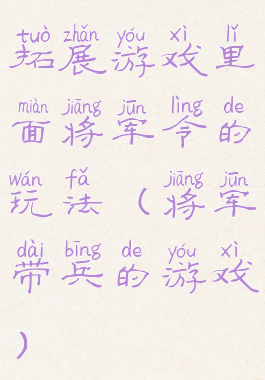 tuò zhǎn yóu xì lǐ
拓展游戏里
miàn jiāng jūn lìng de
面将军令的
wán fǎ jiāng jūn
玩法（将军
dài bīng de yóu xì
带兵的游戏
）